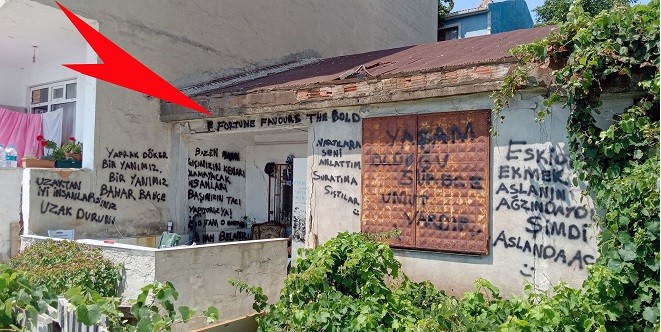 FORTUNE FAVOURS THE BOLD
YAPRAK DÖKER
BİR YANIMIZ
BİR YANIMIZ
BAHAR BAHÇE
UZAKTAN
İYİ İNSANLARSINIZ
UZAK DURUN
BAZEN
İNSANLARI
BAŞIMIZIN TACI
NAZLILARA
SENİ
ANLATTIM
SURATIMA
SIÇTILAR
YAŞAM
OLDUĞU
SÜRECE
UMUT
VARDIR
ESKİDEN
EKMEK
ASLANIN
AĞZINDAYDI
ŞİMDİ
ASLANDA AÇ